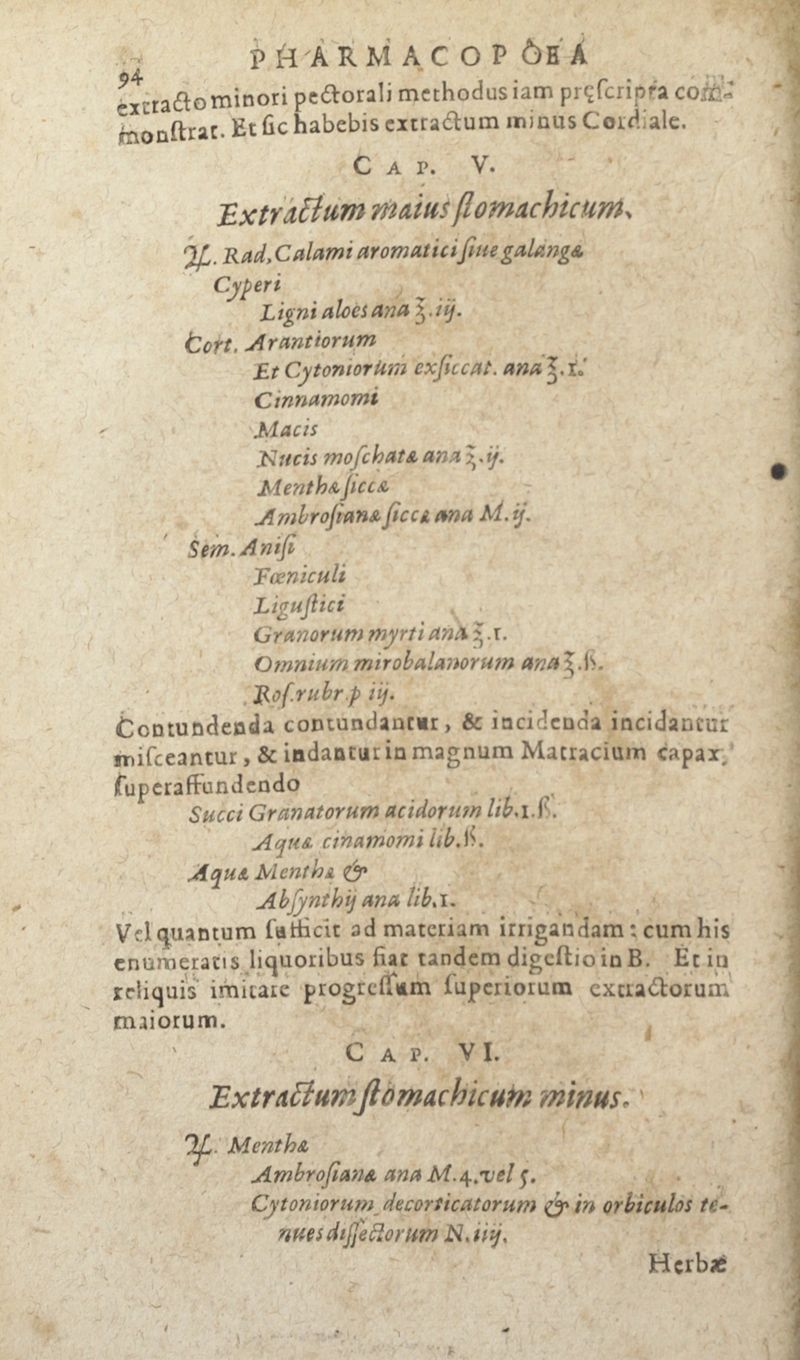 PHARMACOPOEA
94
extracto minori pectorali methodus iam pręſcripta com-
monſtrat. Et ſic habebis extractum minus Cordiale.
CAP. V.
Extractum maius ſtomachicum.
♃. Rad. Calami aromatici ſiue galangæ
Cyperi
Ligni aloes ana ℥.iij.
Cort. Arantiorum
Et Cytoniorum exſiccat. ana ℥.i.
Cinnamomi
Macis
Nucis moſchatæ ana ℥.ij.
Menthæ ſiccæ
Ambroſianæ ſiccæ ana M.ij.
Sem. Aniſi
Fœniculi
Liguſtici
Granorum myrti ana ℥.i.
Omnium mirobalanorum ana ℥.ß.
Roſ.rubr.p iij.
Contundenda contundantur, & incidenda incidantur
miſceantur, & indantur in magnum Matracium capax,
ſuperaffundendo
Succi Granatorum acidorum lib.1.ß.
Aquæ cinamomi lib.ß.
Aquæ Menthæ &
Abſynthij ana lib.1.
Vel quantum ſufficit ad materiam irrigandam: cum his
enumeratis liquoribus fiat tandem digeſtio in B. Et in
reliquis imitare progreſſum ſuperiorum extractorum
maiorum.
CAP. VI.
Extractum ſtomachicum minus.
♃. Menthæ
Ambroſianæ ana M.4.vel 5.
Cytoniorum decorticatorum & in orbiculos te-
nues diſſectorum N.iiij.
Herbæ